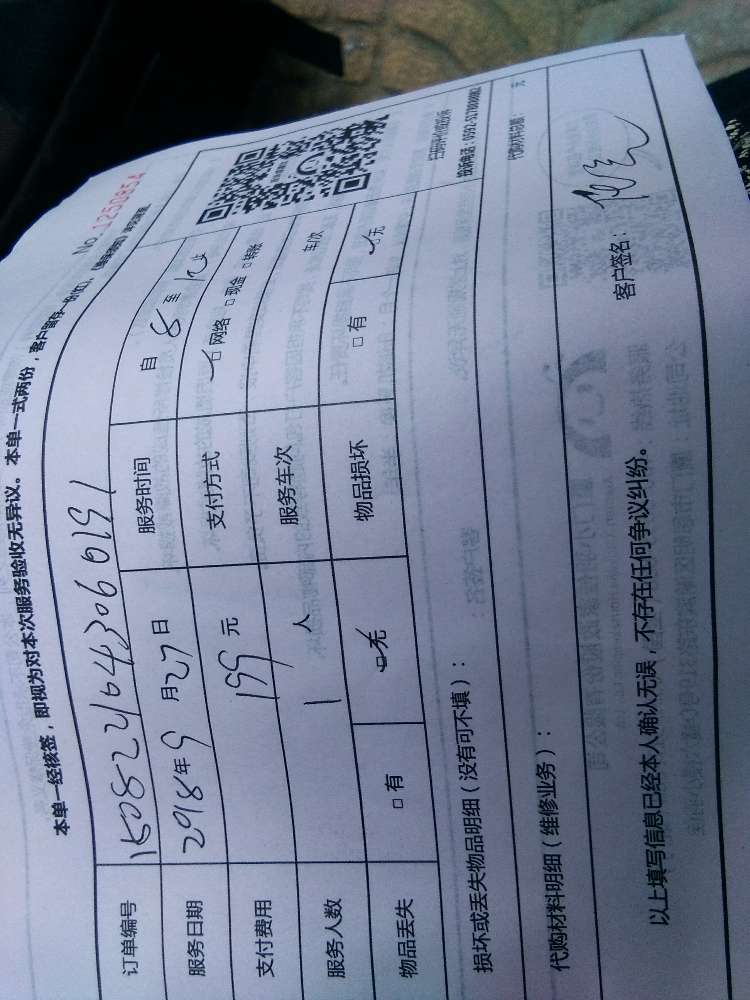 No. 1250854
本单一经核签，即视为对本次服务验收无异议。本单一式两份，客户留存一份
订单编号 1508221643060191
服务日期 2018年9月27日 服务时间 自 8 至 12 止
支付费用 199 元 支付方式 □网络 □现金 □转账
服务人数 1 人 服务车次 车/次
物品丢失 □有 □无 物品损坏 □有 □无
损坏或丢失物品明细（没有可不填）：
代购材料明细（维修业务）： 代购材料总额： 元
以上填写信息已经本人确认无误，不存在任何争议纠纷。
客户签名：